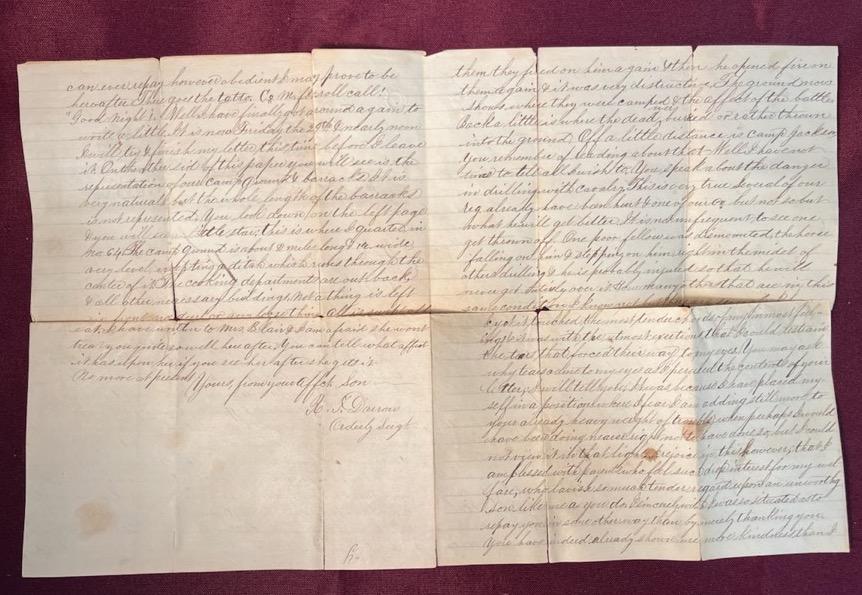 can ever repay however obedient I may prove to be
hereafter There goes the tatto. Co. M fr roll call!
"Good Night". Well I have finally got around again to
write a little. It is now Friday the 29th & nearly noon
I will try & finish my letter this time before I leave
it. On the other sid of this paper you will see is the
representation of our Camp ground & baracks. It is
very natural but the whole length of the barracks
is not represented. You look down on the left page
& you will see a little star, this is where I quarter in
No. 64. The camp ground is about 2 miles long & wide
very level, excepting a ditch which runs through the
center of it. The cooking department are out back
& all other necessary buildings. Not a thing is left
eat. I have written to Mrs. Blair & I am afraid she wont
treat you quite so well here after. You can tell what affect
it has upon her if you see her after she gets it
No more at present Yours, from your affect. son
Darrow
Orderly Sergt
them they fired on him again & then he opened fire on
them again & it was very distructive. The ground now
shows where they were camped & the affect of the battle
Back a little is where the dead, were buried or rather thrown
into the ground. Off a little distance is camp jackson
You remember of reading about that. Well I have not
time to tell all I wish to. You speak about the danger
in drilling with cavalry. This is very true. Several of our
reg. already have been hurt & one of our Co. but not so but
what he will get better. It is not infrequent, to see one
get thrown off. One poor fellow was dismounted, the horse
falling on him & stepping on him right in the midst of
others drilling & he is probably injured so that he will
never get entirely over it. How many others that are in this
same condition I know not
touched the most tender cords of my inmost feel-
ings & it was with the utmost exertions that I could restrain
the tears that forced their way to my eyes. You may ask
why tears came to my eyes as I perused the contents of your
letter; I will tell you, it was because I have placed my
self in a position where I fear I am adding still more to
your already heavy weight of trouble, when perhaps I would
have been doing nearer right not to have done so, but I could
not view it in that light. I rejoice in this however, that I
am blessed with parents who feel such deep interest for my wel
fare, who lavish so much tender regard upon an unworthy
son like me as you do. I sincerely wish I was so situated as to
repay you in some other way than by merely thanking you
You have indeed already shown me more kindness than I